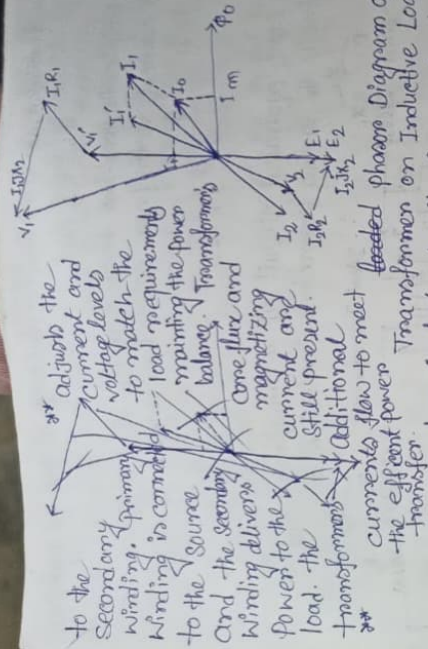 to the
Secondary
winding. primary
winding is connected
to the source
and the secondary
winding delivers
Power to the
load. the
transformers
** adjusts the
current and
voltage levels
to match the
load requirements
mainting the power
balance. Transformer's
core flux and
magnetizing
current are
still present.
** Additional
currents flow to meet
the efficent power
transfer.
V1
I1JX2
I1R1
V1'
I1'
I1
I0
Im
Φ0
I2
V2
I2R2
I2JX2
E1
E2
phasor Diagram
Transformer on Inductive Loa